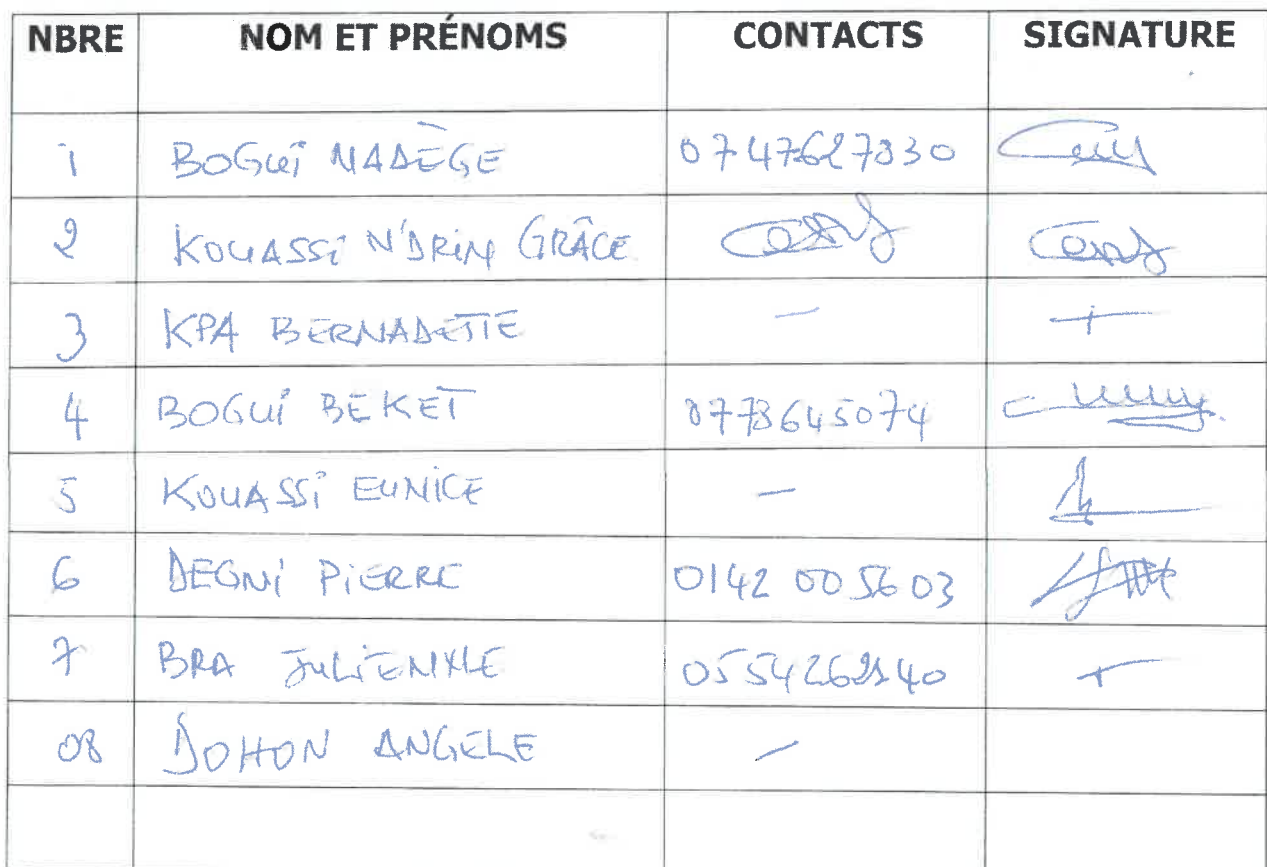 NBRE NOM ET PRÉNOMS CONTACTS SIGNATURE
1 BOGUI NADÈGE 0747627830
2 KOUASSI N'DRIN GRÂCE
3 KPA BERNADETTE - +
4 BOGUI BEKET 0778645074
5 KOUASSI EUNICE -
6 DEGNI PIERRE 0142005603
7 BRA JULIENNE +
08 DOHON ANGELE -